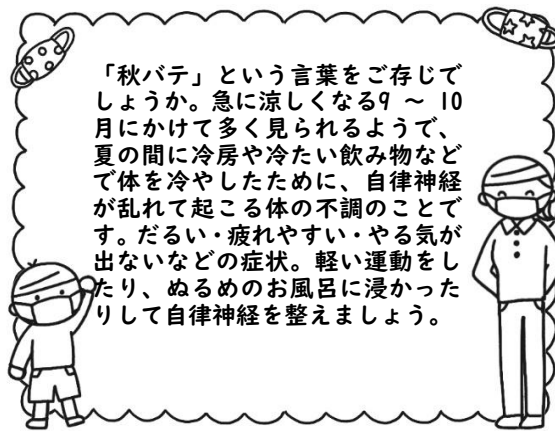 「秋バテ」という言葉をご存じで
しょうか。急に涼しくなる9 ～ 10
月にかけて多く見られるようで、
夏の間に冷房や冷たい飲み物など
で体を冷やしたために、自律神経
が乱れて起こる体の不調のことで
す。だるい・疲れやすい・やる気が
出ないなどの症状。軽い運動をし
たり、ぬるめのお風呂に浸かった
りして自律神経を整えましょう。